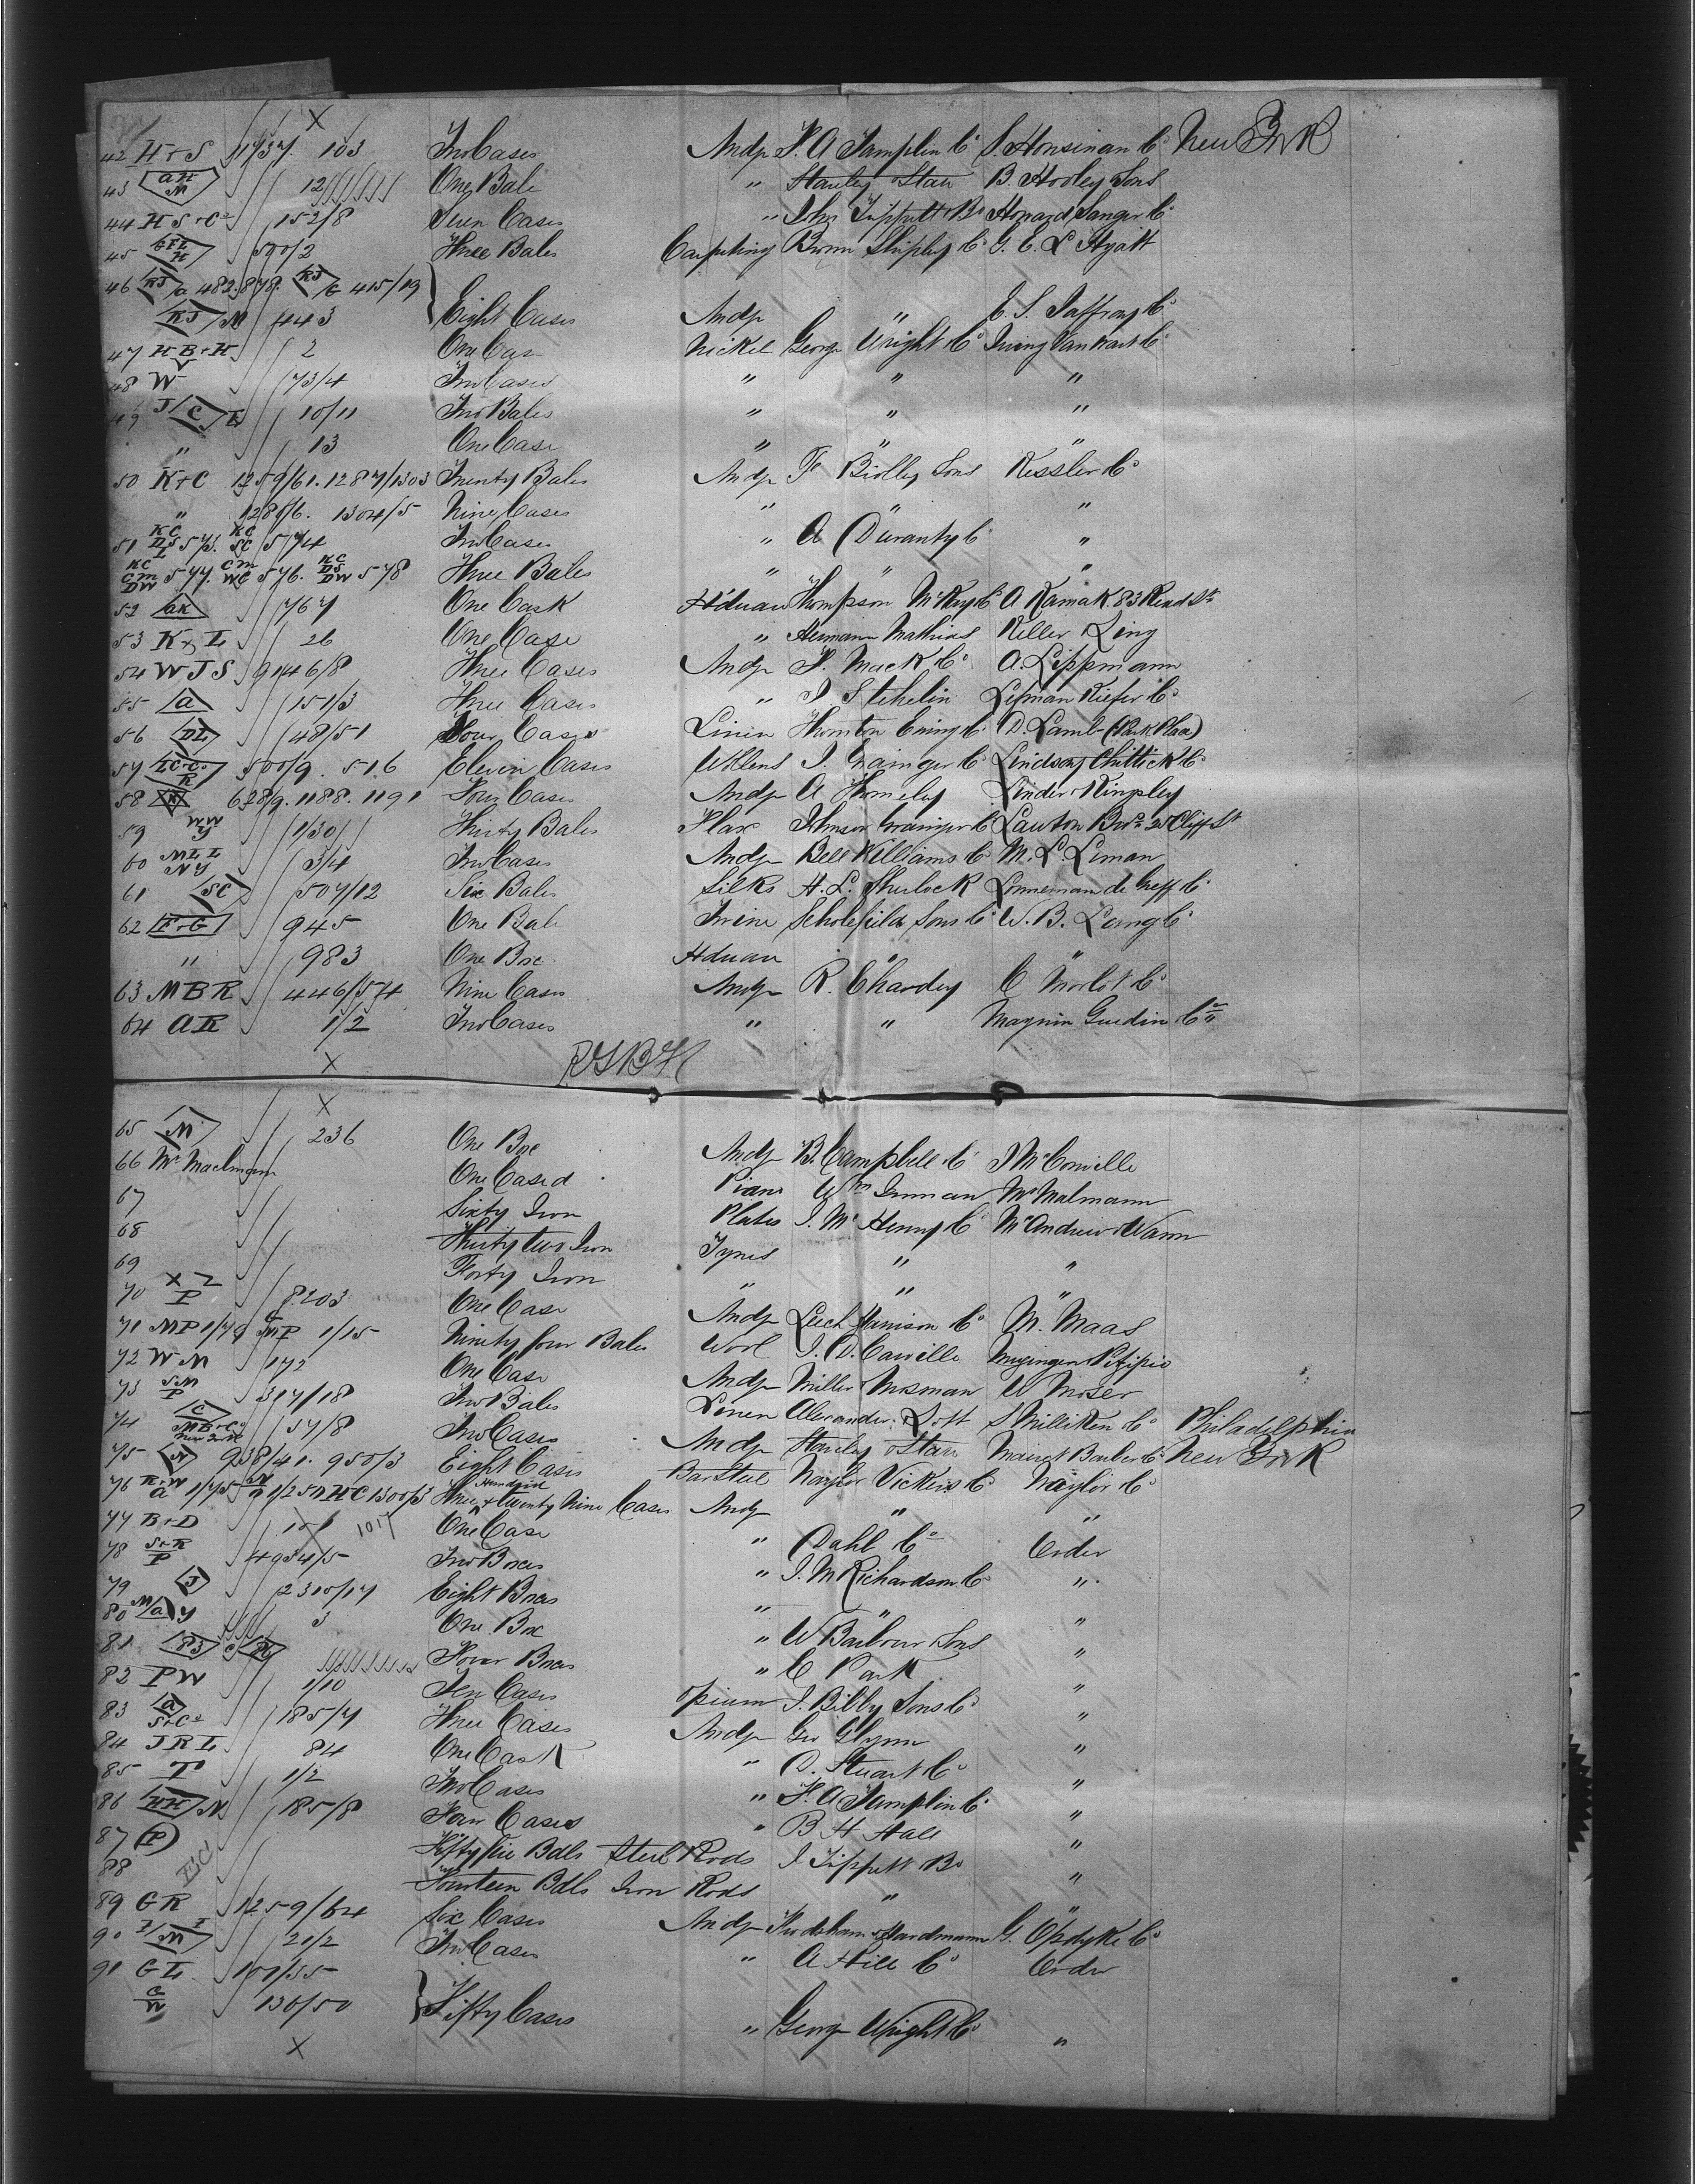 42 H+S 1737. 103 Two Cases Mdze F. A Tamplin Co New York
43 aH M 12 One Bale " Stanley & Starr B. Hooley Sons
44 HS+Co 152/8 Seven Cases " John Tippett & Bro Howard Sanger Co
45 H 500/2 Three Bales Carpeting Brown Shipley Co G. E. L Hyatt
46 KJ/a 482. 878. KJ/G 415/19
KJ/M 443 Eight Cases Mdze " E. S. Jaffray Co
47 HB+H 2 One Case Nickel George Wright Co Irving Van Wart Co
48 W 73/4 Two Cases " " "
49 J/C/E 10/11 Two Bales " " "
" 13 One Case " " "
50 K+C 1259/61. 1287/1303 Twenty Bales Mdze Kessler Co
" 1286. 1304/5 Nine Cases " " "
51 KC 575. KC SC 574 Two Cases " A Duranty Co "
KC CM DW 577. CM WC 576. KC DS DW 578 Three Bales " " "
52 aK 767 One Cask Hdware Thompson McKay Co A Kamak. 83 Read St
53 K+L 26 One Case " Hermann Mathias Keller & Ling
54 WJS 9146/8 Three Cases Mdze F. Mack Co A. Lippmann
55 a 151/3 Three Cases " J Stehelin Lehman Kiefer Co
56 DL 48/51 Four Cases Linen Thornton Ewing Co D. Lamb (Park Place)
57 LC+Co R 500/9. 516 Eleven Cases Wllens J. Grainger Co Lindsay Chittick Co
58 628/9. 1188. 1191 Four Cases Mdze A Thomely Linder & Kingsley
59 WW Y 1/30 Thirty Bales Flax Johnson Grainger Co Lawton Bros 25 Cliff St
60 MLL NY 3/4 Two Cases Mdze Bell Williams Co M. L. Liman
61 SC 507/12 Six Bales Silks H. L. Sherlock Lonneman de Greff Co
62 F+G 945 One Bale Twine Scholefield Sons Co W. B. Lang Co
" 983 One Box Hdware " "
63 MBR 446/54 Nine Cases Mdze R. Chardey C Morlot Co
64 AR 1/2 Two Cases " " Magnin Guedin Co
65 M 236 One Box Mdze B. Campbell Co J McConville
66 Mr Maelmann One Cased Piano Wm Inman Mr Malmann
67 Sixty Iron Plates J. McHenry Co McAndrew & Wann
68 Thirty two Iron Tyres " "
69 Forty Iron " " "
70 P 8203 One Case Mdze Leech Harrison Co M. Maas
71 MP 1/79 MP 1/15 Ninety four Bales Wool
72 WM 172 One Case Mdze Miller & Mosman W Moser
73 SM P 317/18 Two Bales Linen Alexander Lott S Milliken Co Philadelphia
74 C MB+Co New York 57/8 Two Cases Mdze Stanley & Starr New York
75 N 938/41. 950/3 Eight Cases Bar Steel Naylor Vickers Co Naylor Co
76 Three Hundred & twenty Nine Cases Mdze " "
77 B+D 1017 One Case " Dahl Co Order
78 S+K P 4934/5 Two Boxes " J. M Richardson Co "
79 J 2310/17 Eight Boxes " " "
80 M/a/y 3 One Box " W Barbour Sons "
81 83 Four Boxes " C Park "
82 PW 1/10 Ten Cases Opium J. Bibby Sons Co "
83 a S+Co 185/7 Three Cases Mdze Geo Glynn "
84 JRL 84 One Cask " D. Stuart Co "
85 T 1/2 Two Cases " F. A Tamplin Co "
86 HH N 185/8 Four Cases " B H Hall "
87 P Fifty five Bdls Steel Rods J Tippett Bro "
88 Fourteen Bdls Iron Rods " "
89 GR 1259/64 Six Cases Mdze G. Opdyke Co
90 M 21/2 Two Cases " A Hill Co Order
91 GL 101/35
C N 136/50 Fifty Cases " George Wright Co "